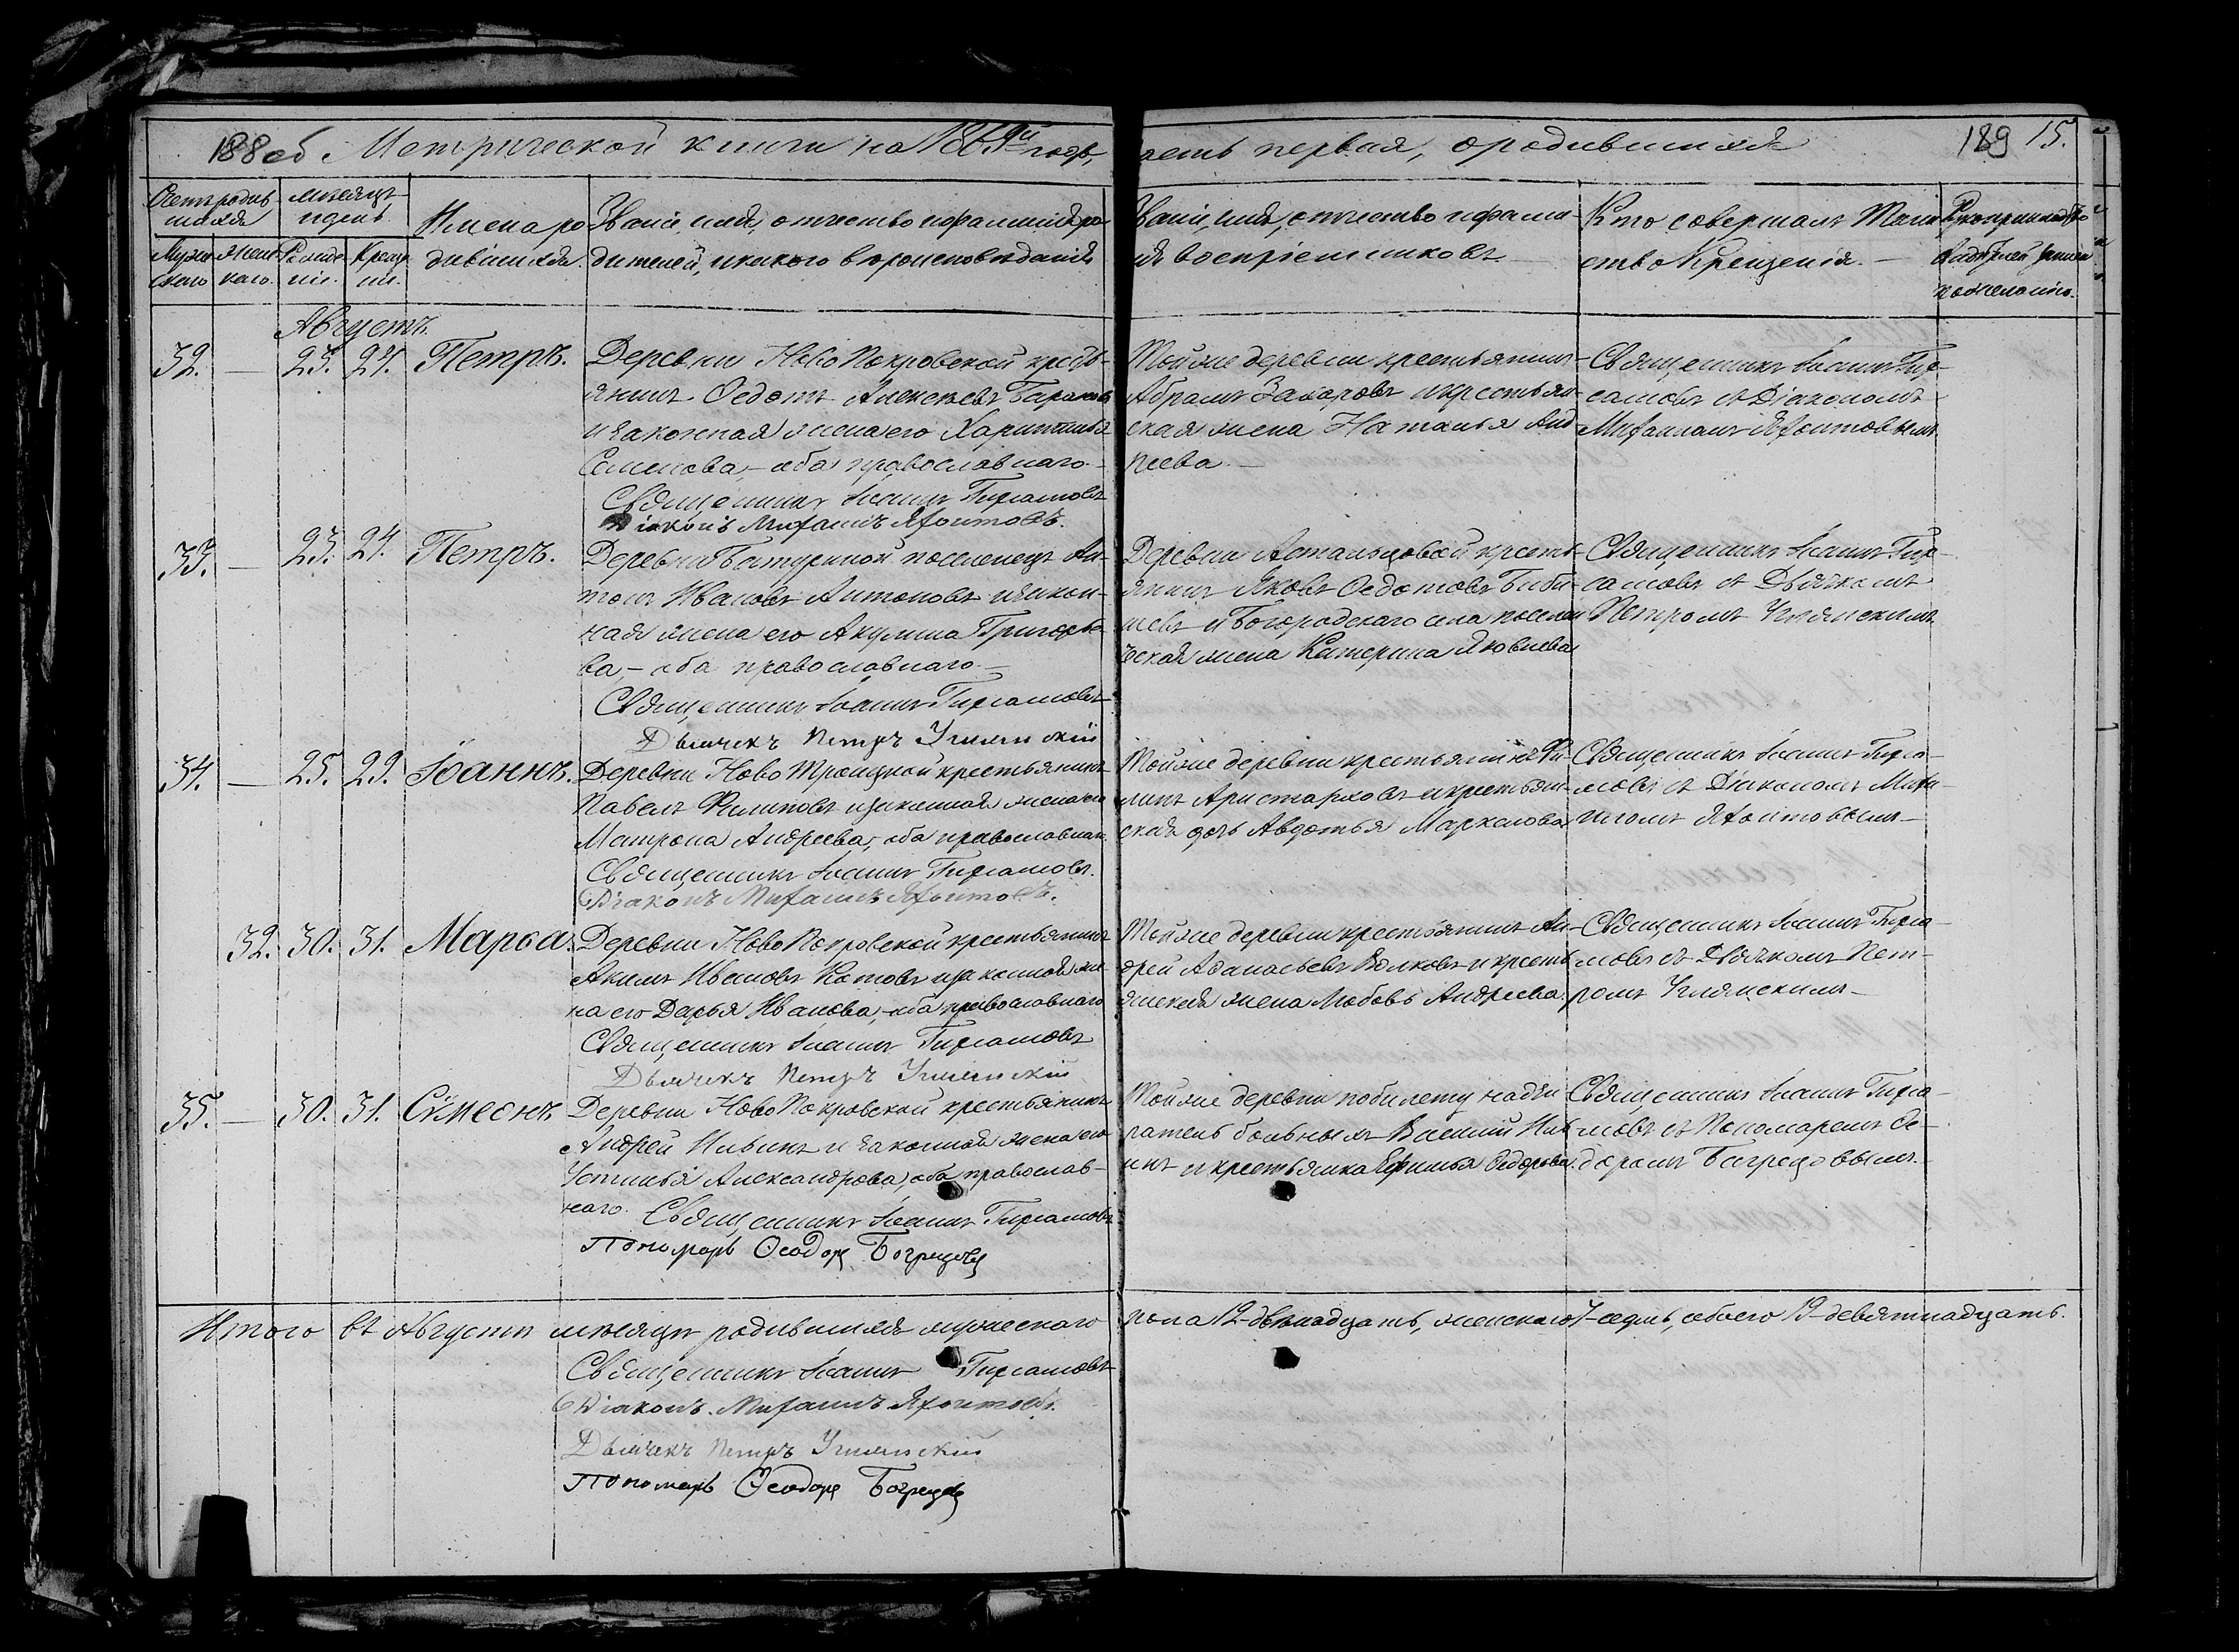 188 об Метрической книги на 186 годъ,
часть первая, о родившихся
189 15.
Счетъ родив-
шихся
Мѣсяцъ
и день.
Имена ро-
дившихся.
Званіе, имя, отчество и фамилія ро-
дителей, и какого вѣроисповѣданія
Званіе, имя, отчество и фами-
лія воспріемниковъ
Кто совершалъ Таин-
ство Крещенія.
Рукоприкладство
свидѣтелей записи
по желанію.
Муже-
скаго
Жен-
скаго.
Рожде-
нія.
Креще-
нія.
Августъ.
32. — 23. 24. Петръ.
Деревни Ново Покровской кресть-
янинъ Ѳедотъ Алексѣевъ Барановъ
и законная жена его Харитинья
Семенова, оба православнаго.
Священникъ Іоаннъ Гирсамовъ
Діаконъ Михаилъ Яхонтовъ.
Той же деревни крестьянинъ
Абрамъ Захаровъ и крестьян-
ская жена Наталья Анд-
реева.
Священникъ Іоаннъ Гир-
самовъ съ Діакономъ
Михаиломъ Яхонтовымъ.
33. — 23. 24. Петръ.
Деревни Батуриной поселенецъ Ан-
тонъ Ивановъ Антоновъ и закон-
ная жена его Акулина Григорье-
ва, — оба православнаго —
Священникъ Іоаннъ Гирсамовъ
Дьячекъ Петръ Углянскій
Деревни Астальцовой кресть-
янинъ Яковъ Ѳедотовъ Биби-
шевъ и Богородскаго села поселен-
ческая жена Катерина Яковлева
Священникъ Іоаннъ Гир-
самовъ съ Дьячкомъ
Петромъ Углянскимъ.
34. — 25. 29. Іоаннъ.
Деревни Ново Троицкой крестьянинъ
Павелъ Филиповъ и законная жена его
Матрона Андреева, оба православнаго.
Священникъ Іоаннъ Гирсамовъ.
Діаконъ Михаилъ Яхонтовъ.
Той же деревни крестьянинъ Фи-
липъ Аристарховъ и крестьян-
ская дочь Авдотья Маркелова
Священникъ Іоаннъ Гирса-
мовъ съ Діакономъ Миха-
иломъ Яхонтовымъ —
32. 30. 31. Марѳа.
Деревни Ново Покровской крестьянинъ
Акимъ Ивановъ Котовъ и законная же-
на его Дарья Иванова, оба православнаго
Священникъ Іоаннъ Гирсамовъ
Дьячекъ Петръ Углянскій
Той же деревни крестьянинъ Ан-
дрей Аѳанасьевъ Волковъ и кресть-
янская жена Любовь Андреева.
Священникъ Іоаннъ Гирса-
мовъ съ Дьячкомъ Пет-
ромъ Углянскимъ —
35. — 30. 31. Сѵмеонъ.
Деревни Ново Покровской крестьянинъ
Андрей Ильинъ и законная жена его
Устинья Александрова, оба православ-
наго. Священникъ Іоаннъ Гирсамовъ
Пономарь Ѳеодоръ Богрецовъ
Той же деревни по билету надзи-
ратель больныхъ Василій
инъ и крестьянка Ефимья Ѳедорова.
Священникъ Іоаннъ Гирса-
мовъ съ Пономаремъ Ѳе-
доромъ Багрецовымъ.
Итого въ Августѣ мѣсяцѣ родившихся мужескаго пола 12-двѣнадцать, женскаго 7-седмь, обоего 19-девятнадцать.
Священникъ Іоаннъ Гирсамовъ
Діаконъ Михаилъ Яхонтовъ.
Дьячекъ Петръ Углянскій
Пономарь Ѳеодоръ Богрецовъ